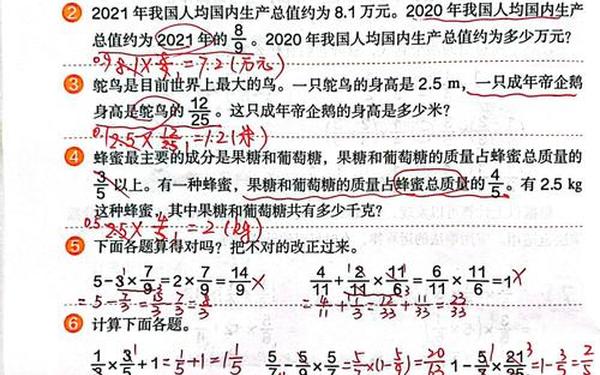 ② 2021年我国人均国内生产总值约为8.1万元。2020年我国人均国内生产
总值约为2021年的8/9。2020年我国人均国内生产总值约为多少万元?
0.9 8.1×8/9=7.2(万元)
③ 鸵鸟是目前世界上最大的鸟。一只鸵鸟的身高是2.5 m,一只成年帝企鹅
身高是鸵鸟的12/25。这只成年帝企鹅的身高是多少米?
0.1 2.5×12/25=1.2(米)
④ 蜂蜜最主要的成分是果糖和葡萄糖,果糖和葡萄糖的质量占蜂蜜总质量的
3/5以上。有一种蜂蜜,果糖和葡萄糖的质量占蜂蜜总质量的4/5。有2.5 kg
这种蜂蜜,其中果糖和葡萄糖共有多少千克?
0.5 2.5×4/5=2(kg)
⑤ 下面各题算得对吗?把不对的改正过来。
5-3×7/9=2×7/9=14/9× 4/11+2/11×11/6=6/11×11/6=1×
=5-7/3=15/3-7/3=8/3 =4/11+1/3=12/33+11/33=23/33
⑥ 计算下面各题。
1/3×3/5+1=1/5+1=1 1/5 5/7-5/9×5/7=5/7×(1-5/9)=20/63 1-5/7×21/25=1-3/5=2/5